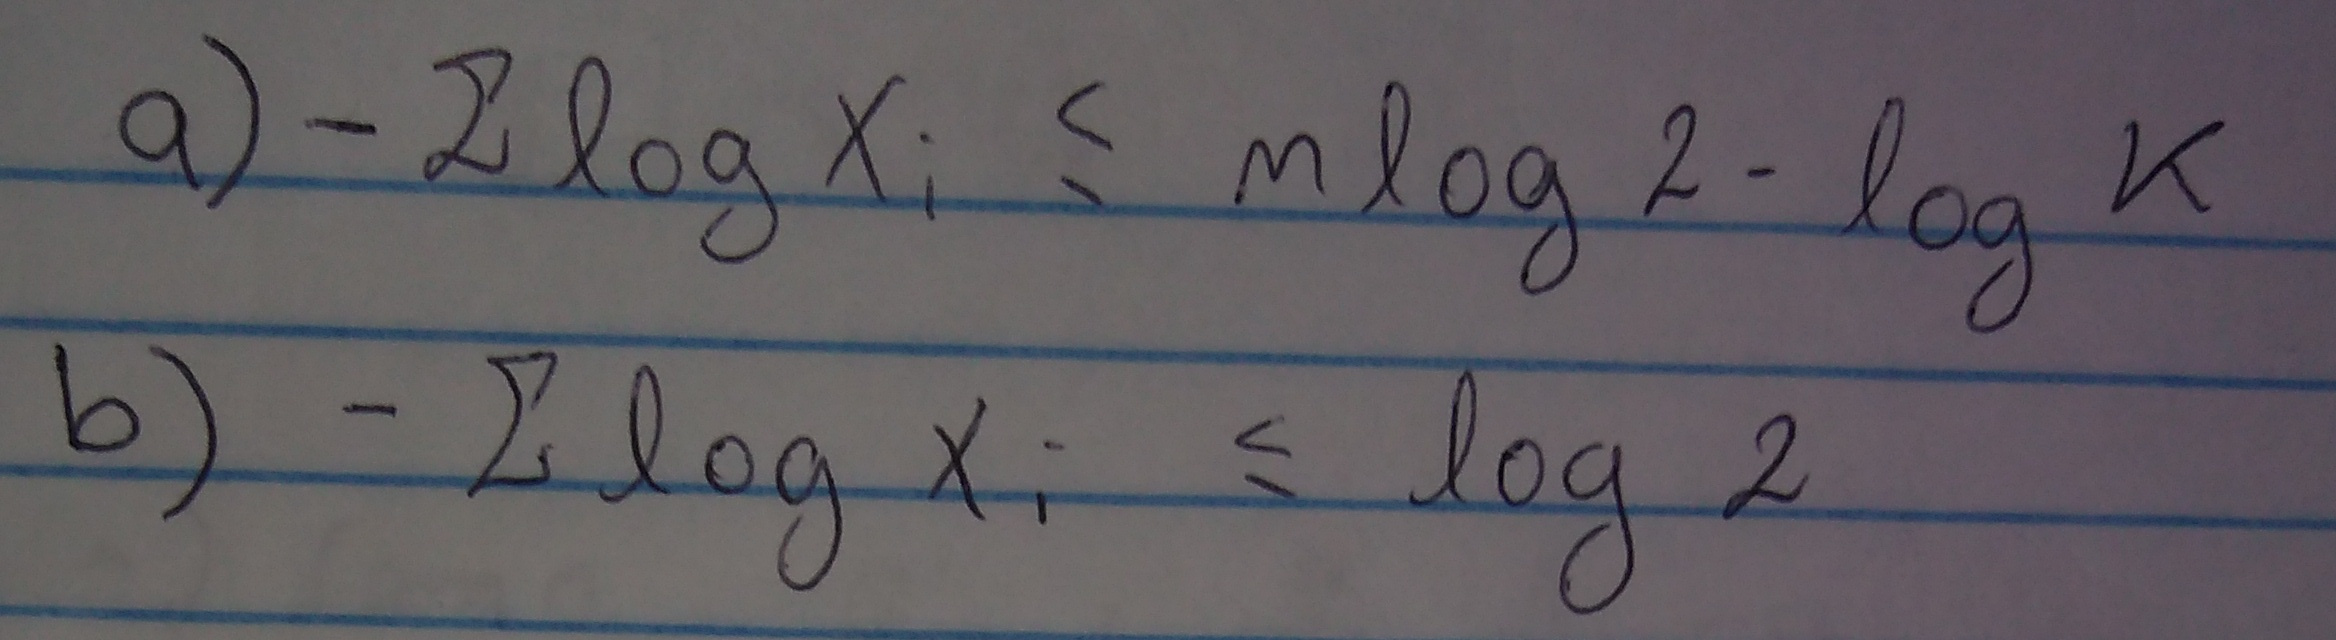 a) - Σ log xᵢ ≤ n log 2 - log K
b) - Σ log xᵢ ≤ log 2